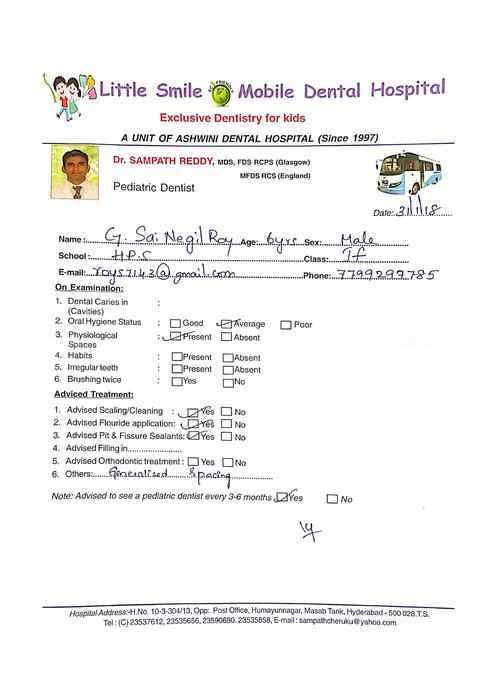 Little Smile Mobile Dental Hospital
Exclusive Dentistry for kids
A UNIT OF ASHWINI DENTAL HOSPITAL (Since 1997)
Dr. SAMPATH REDDY, MDS, FDS RCPS (Glasgow)
MFDS RCS (England)
Pediatric Dentist
Date: 31/1/18
Name: G. Sai Negil Roy Age: 6yrs Sex: Male
School: H.P.S Class: If
E-mail: roys7143@gmail.com Phone: 7799299785
On Examination:
1. Dental Caries in :
(Cavities)
2. Oral Hygiene Status : Good Average Poor
3. Physiological : Present Absent
Spaces
4. Habits : Present Absent
5. Irregular teeth : Present Absent
6. Brushing twice : Yes No
Adviced Treatment:
1. Advised Scaling/Cleaning : Yes No
2. Advised Flouride application: Yes No
3. Advised Pit & Fissure Sealants: Yes No
4. Advised Filling in
5. Advised Orthodontic treatment : Yes No
6. Others: Generalised Spacing
Note: Advised to see a pediatric dentist every 3-6 months Yes No
Hospital Address:-H.No. 10-3-304/13, Opp: Post Office, Humayunnagar, Masab Tank, Hyderabad - 500 028.T.S.
Tel : (C) 23537612, 23535656, 23590680. 23535858, E-mail : sampathcheruku@yahoo.com